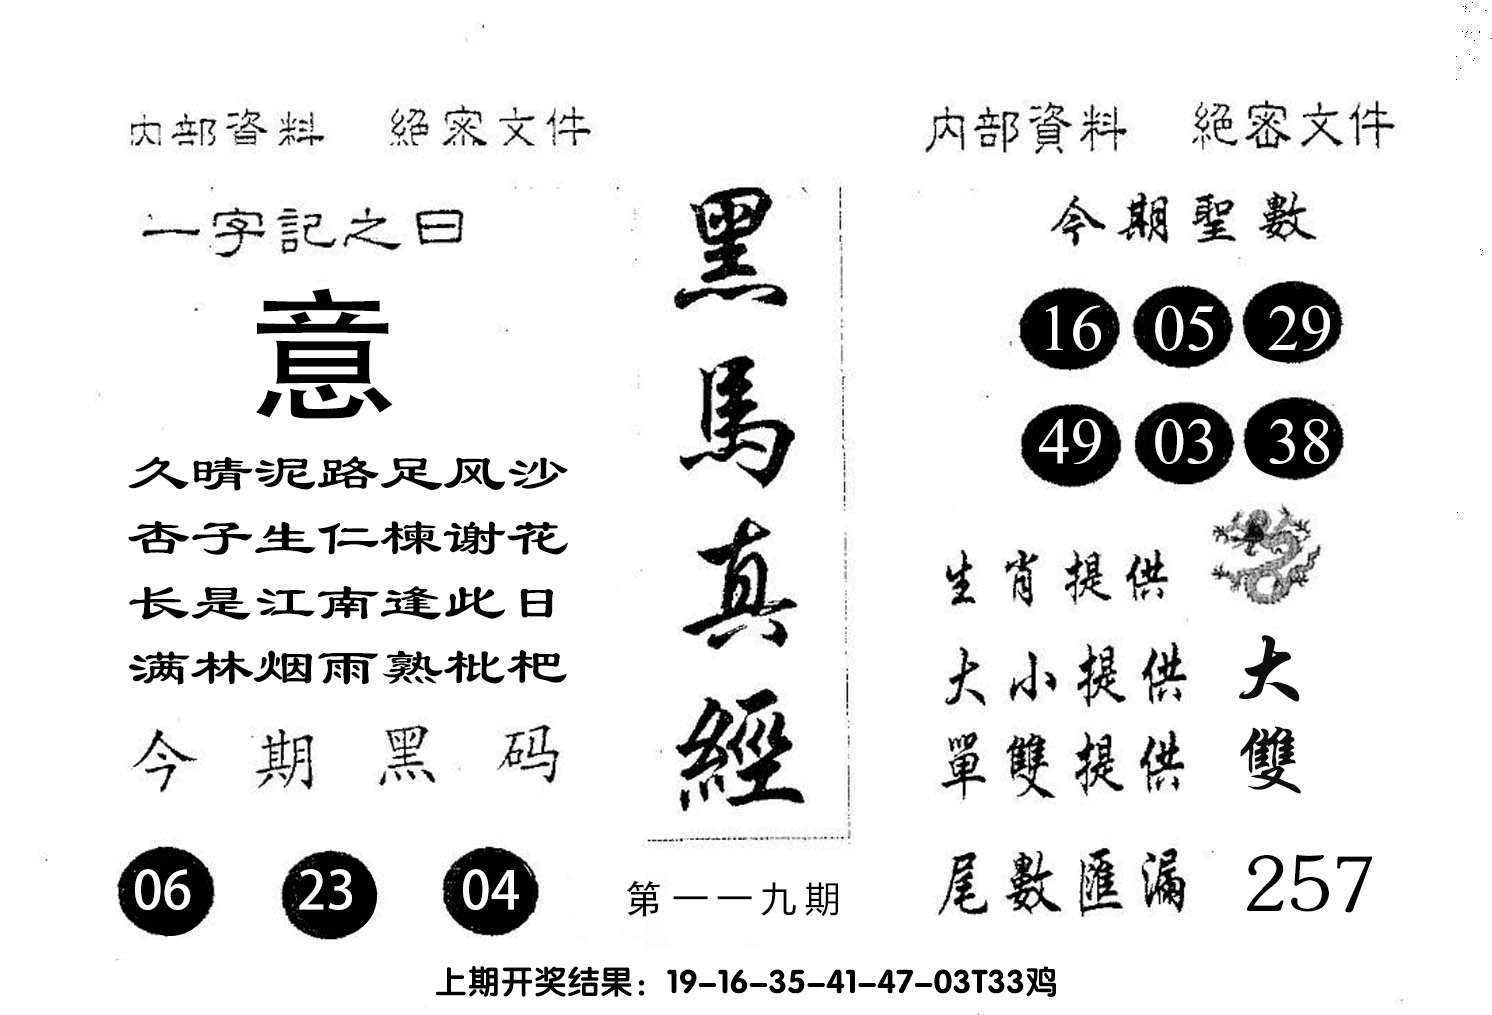 内部資料　絕密文件
一字記之曰
意
久晴泥路足风沙
杏子生仁楝谢花
长是江南逢此日
满林烟雨熟枇杷
今期黑码
06 23 04
黑馬真經
第一一九期
内部資料　絕密文件
今期聖數
16 05 29
49 03 38
生肖提供
大小提供 大
單雙提供 雙
尾數匯漏 257
上期开奖结果：19-16-35-41-47-03T33鸡